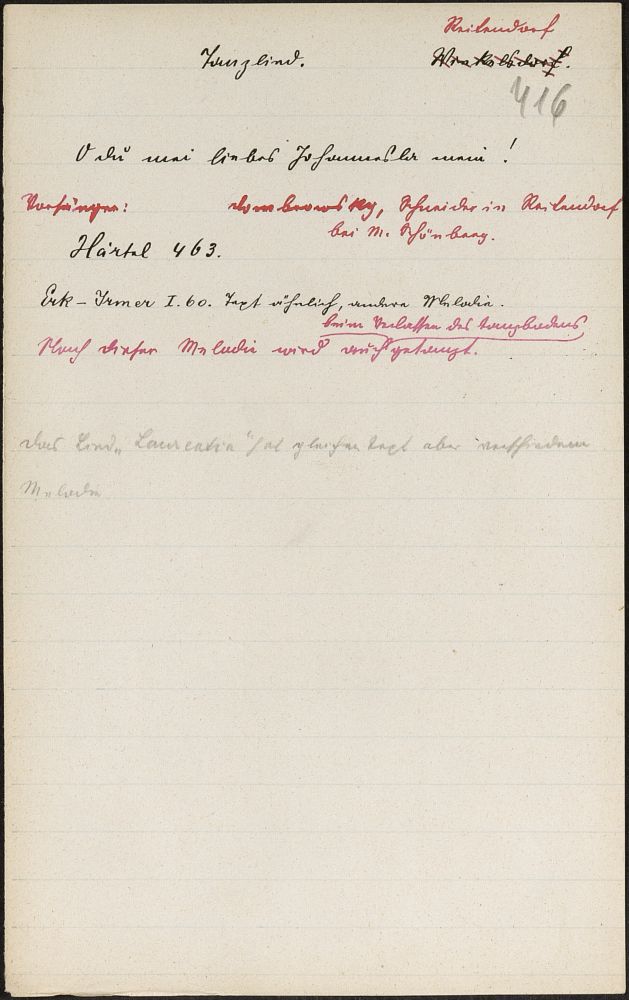 Reitendorf
Tanzlied. Winkelsdorf.
416
O du mei liebes Johannesla mein!
Vorsänger: Dombrowsky, Schneider in Reitendorf
bei M. Schönberg.
Härtel 463.
Erk-Irmer I. 60. Text ähnlich, andere Melodie.
beim Verlassen des Tanzbodens
Nach dieser Melodie wird auch getanzt.
Das Lied „Laurentia" hat gleichen Text aber verschiedene
Melodie